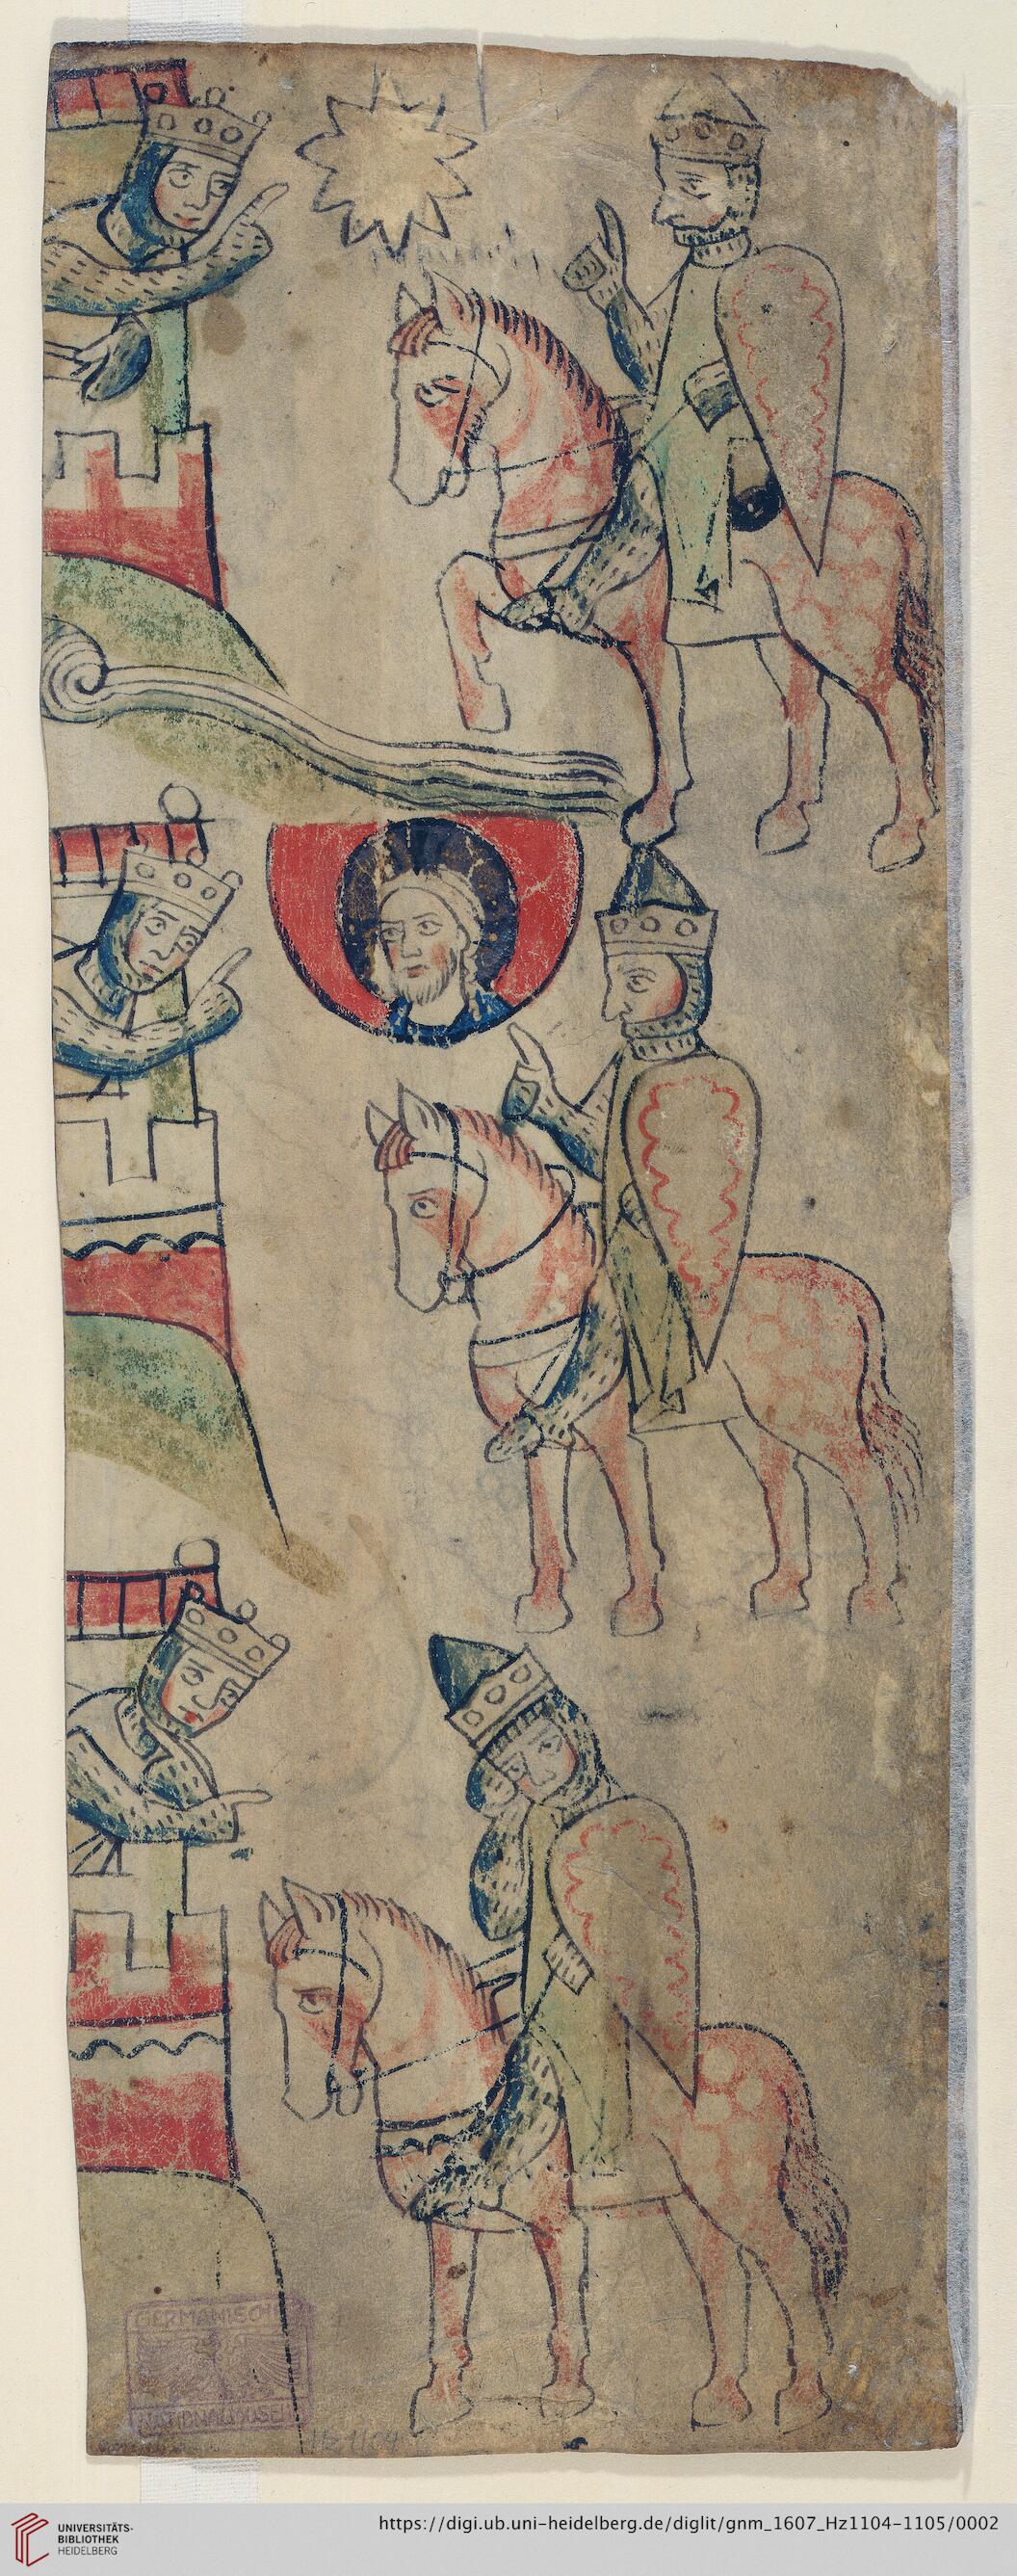 GERMANISCHES
NATIONALMUSEUM
Hz 1104
UNIVERSITÄTS-
BIBLIOTHEK
HEIDELBERG
https://digi.ub.uni-heidelberg.de/diglit/gnm_1607_Hz1104-1105/0002